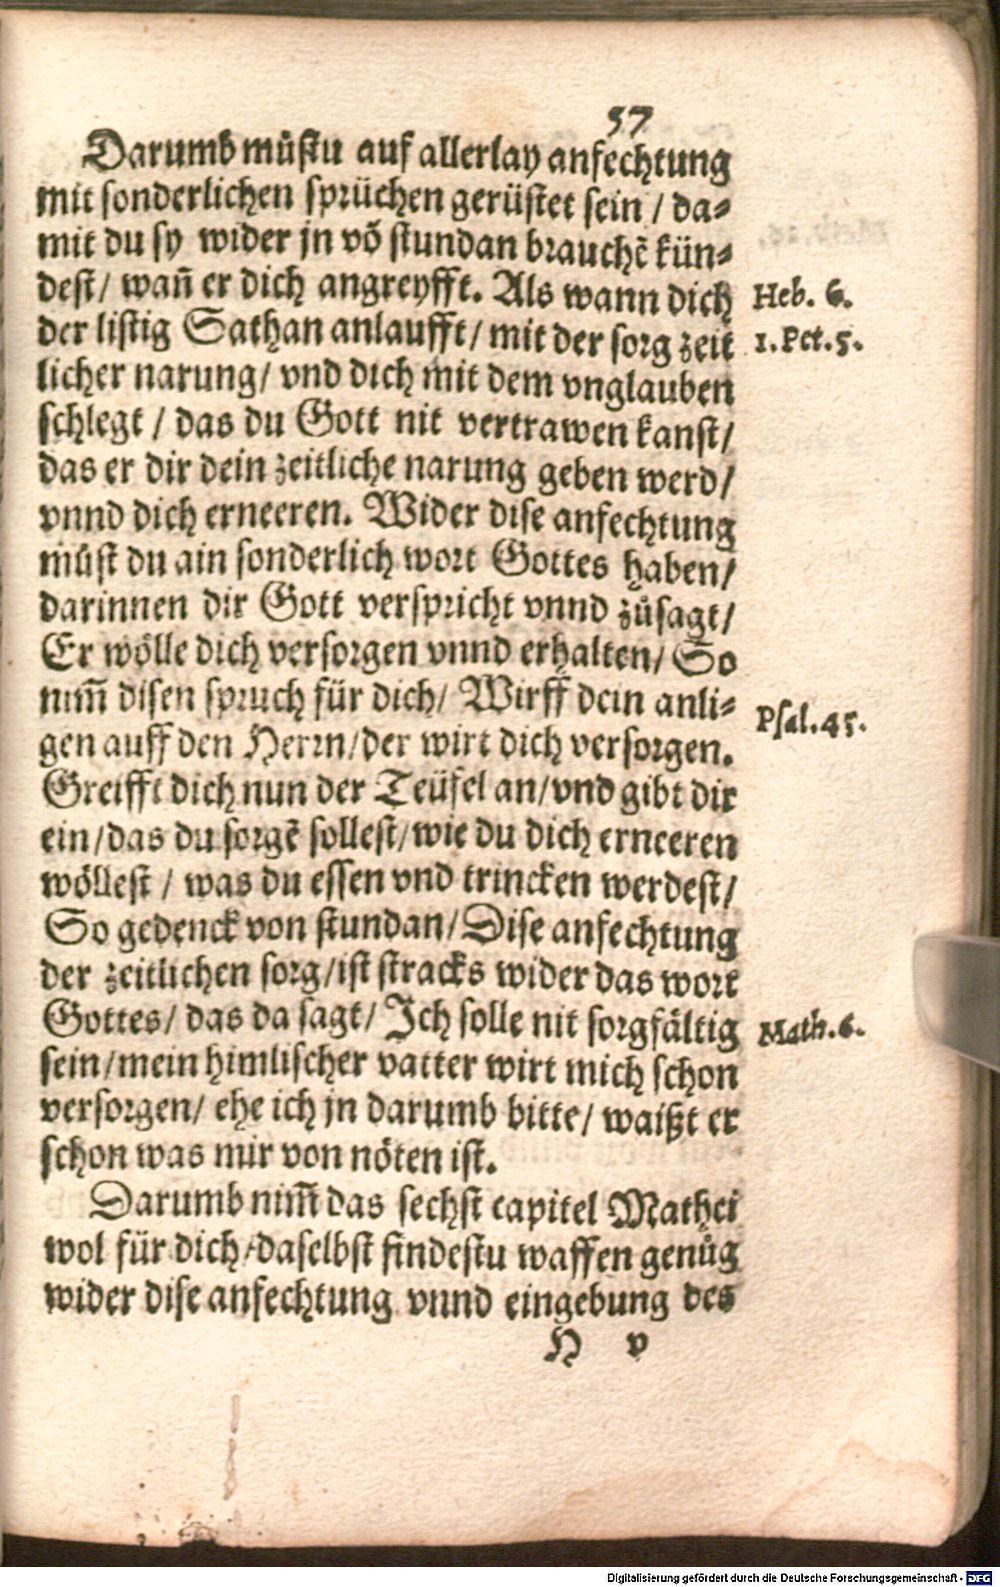 57
Darumb müſtu auf allerlay anfechtung
mit ſonderlichen ſprüchen gerüſtet ſein / da⸗
mit du ſy wider jn võ ſtundan brauchẽ kün⸗
deſt / wañ er dich angreyfft. Als wann dich
Heb. 6.
der liſtig Sathan anlaufft / mit der ſorg zeit
1. Pet. 5.
licher narung / vnd dich mit dem vnglauben
ſchlegt / das du Gott nit vertrawen kanſt /
das er dir dein zeitliche narung geben werd /
vnnd dich erneeren. Wider diſe anfechtung
müſt du ain ſonderlich wort Gottes haben /
darinnen dir Gott verſpricht vnnd zůſagt /
Er wölle dich verſorgen vnnd erhalten / So
nim̃ diſen ſpruch für dich / Wirff dein anli⸗
Pſal. 45.
gen auff den Herrn / der wirt dich verſorgen.
Greifft dich nun der Teüfel an / vnd gibt dir
ein / das du ſorgẽ ſolleſt / wie du dich erneeren
wölleſt / was du eſſen vnd trincken werdeſt /
So gedenck von ſtundan / Diſe anfechtung
der zeitlichen ſorg / iſt ſtracks wider das wort
Gottes / das da ſagt / Ich ſolle nit ſorgfältig
Math. 6.
ſein / mein himliſcher vatter wirt mich ſchon
verſorgen / ehe ich jn darumb bitte / waißt er
ſchon was mir von nöten iſt.
Darumb nim̃ das ſechſt capitel Mathei
wol für dich / daſelbſt findeſtu waffen genůg
wider diſe anfechtung vnnd eingebung des
H v
Digitalisierung gefördert durch die Deutsche Forschungsgemeinschaft - DFG